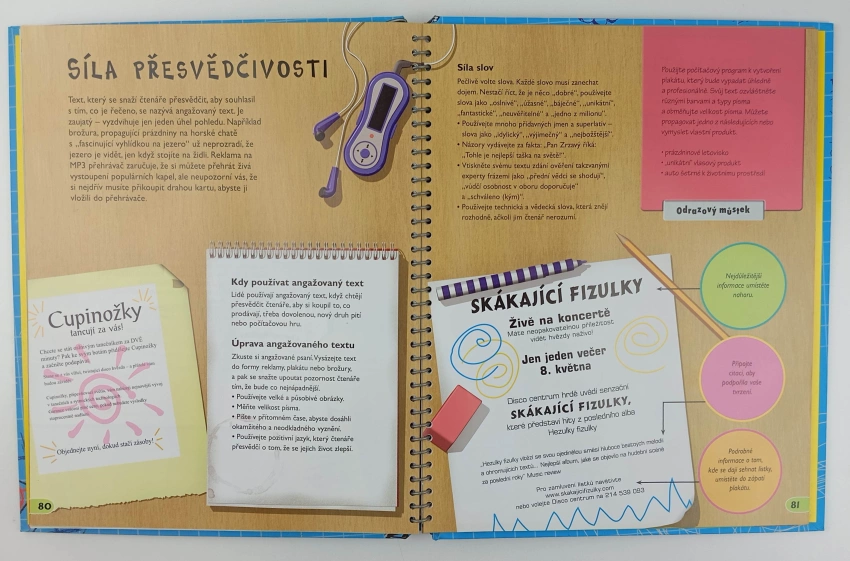 SÍLA PŘESVĚDČIVOSTI
Text, který se snaží čtenáře přesvědčit, aby souhlasil
s tím, co je řečeno, se nazývá angažovaný text. Je
zaujatý – vyzdvihuje jen jeden úhel pohledu. Například
brožura, propagující prázdniny na horské chatě
s „fascinující vyhlídkou na jezero“ už neprozradí, že
jezero je vidět, jen když stojíte na židli. Reklama na
MP3 přehrávač zaručuje, že si můžete přehrát živá
vystoupení populárních kapel, ale neupozorní vás, že
si nejdřív musíte přikoupit drahou kartu, abyste ji
vložili do přehrávače.
Cupinožky
tancují za vás!
Chcete se stát skvělým tanečníkem za DVĚ
minuty? Pak ke svým botám přidělejte Cupinožky
a začněte podupávat.
Objednejte nyní, dokud stačí zásoby!
80
Kdy používat angažovaný text
Lidé používají angažovaný text, když chtějí
přesvědčit čtenáře, aby si koupil to, co
prodávají, třeba dovolenou, nový druh pití
nebo počítačovou hru.
Úprava angažovaného textu
Zkuste si angažované psaní. Vysázejte text
do formy reklamy, plakátu nebo brožury,
a pak se snažte upoutat pozornost čtenáře
tím, že bude co nejnápadnější.
• Používejte velké a působivé obrázky.
• Měňte velikost písma.
• Pište v přítomném čase, abyste dosáhli
okamžitého a neodkladného vyznění.
• Používejte pozitivní jazyk, který čtenáře
přesvědčí o tom, že se jejich život zlepší.
Síla slov
Pečlivě volte slova. Každé slovo musí zanechat
dojem. Nestačí říct, že je něco „dobré“, použijte
slova jako „oslnivé“, „úžasné“, „báječné“, „unikátní“,
„fantastické“, „neuvěřitelné“ a „jedno z milionu“.
• Používejte mnoho přídavných jmen a superlativ –
slova jako „idylický“, „výjimečný“ a „nejbožštější“.
• Názory vydávejte za fakta: „Pan Zrzavý říká:
„Tohle je nejlepší taška na světě!“.
• Vtiskněte svému textu zdání ověření takzvanými
experty frázemi jako „přední vědci se shodují“,
„vůdčí osobnost v oboru doporučuje“
a „schváleno (kým)“.
• Používejte technická a vědecká slova, která znějí
rozhodně, ačkoli jim čtenář nerozumí.
Použijte počítačový program k vytvoření
plakátu, který bude vypadat úhledně
a profesionálně. Svůj text ozvláštněte
různými barvami a typy písma
a obměňujte velikost písma. Můžete
propagovat jedno z následujících nebo
vymyslet vlastní produkt.
• prázdninové letovisko
• „unikátní“ vlasový produkt
• auto šetrné k životnímu prostředí
Odrazový můstek
SKÁKAJÍCÍ FIZULKY
Živě na koncertě
Máte neopakovatelnou příležitost
vidět hvězdy naživo!
Jen jeden večer
8. května
Disco centrum hrdě uvádí senzační
SKÁKAJÍCÍ FIZULKY,
které představí hity z posledního alba
Hezulky fizulky
„Hezulky fizulky vibrují se svou ojedinělou směsí hluboce beatových melodií
a ohromujících textů... Nejlepší album, jaké se objevilo na hudební scéně
za poslední roky“ Music review
Pro zamluvení lístků navštivte
www.skakajicifizulky.com
nebo volejte Disco centrum na 214 539 093
Nejdůležitější
informace umístěte
nahoru.
Připojte
citaci, aby
podpořila vaše
tvrzení.
Podrobné
informace o tom,
kde se dají sehnat lístky,
umístěte do zápatí
plakátu.
81